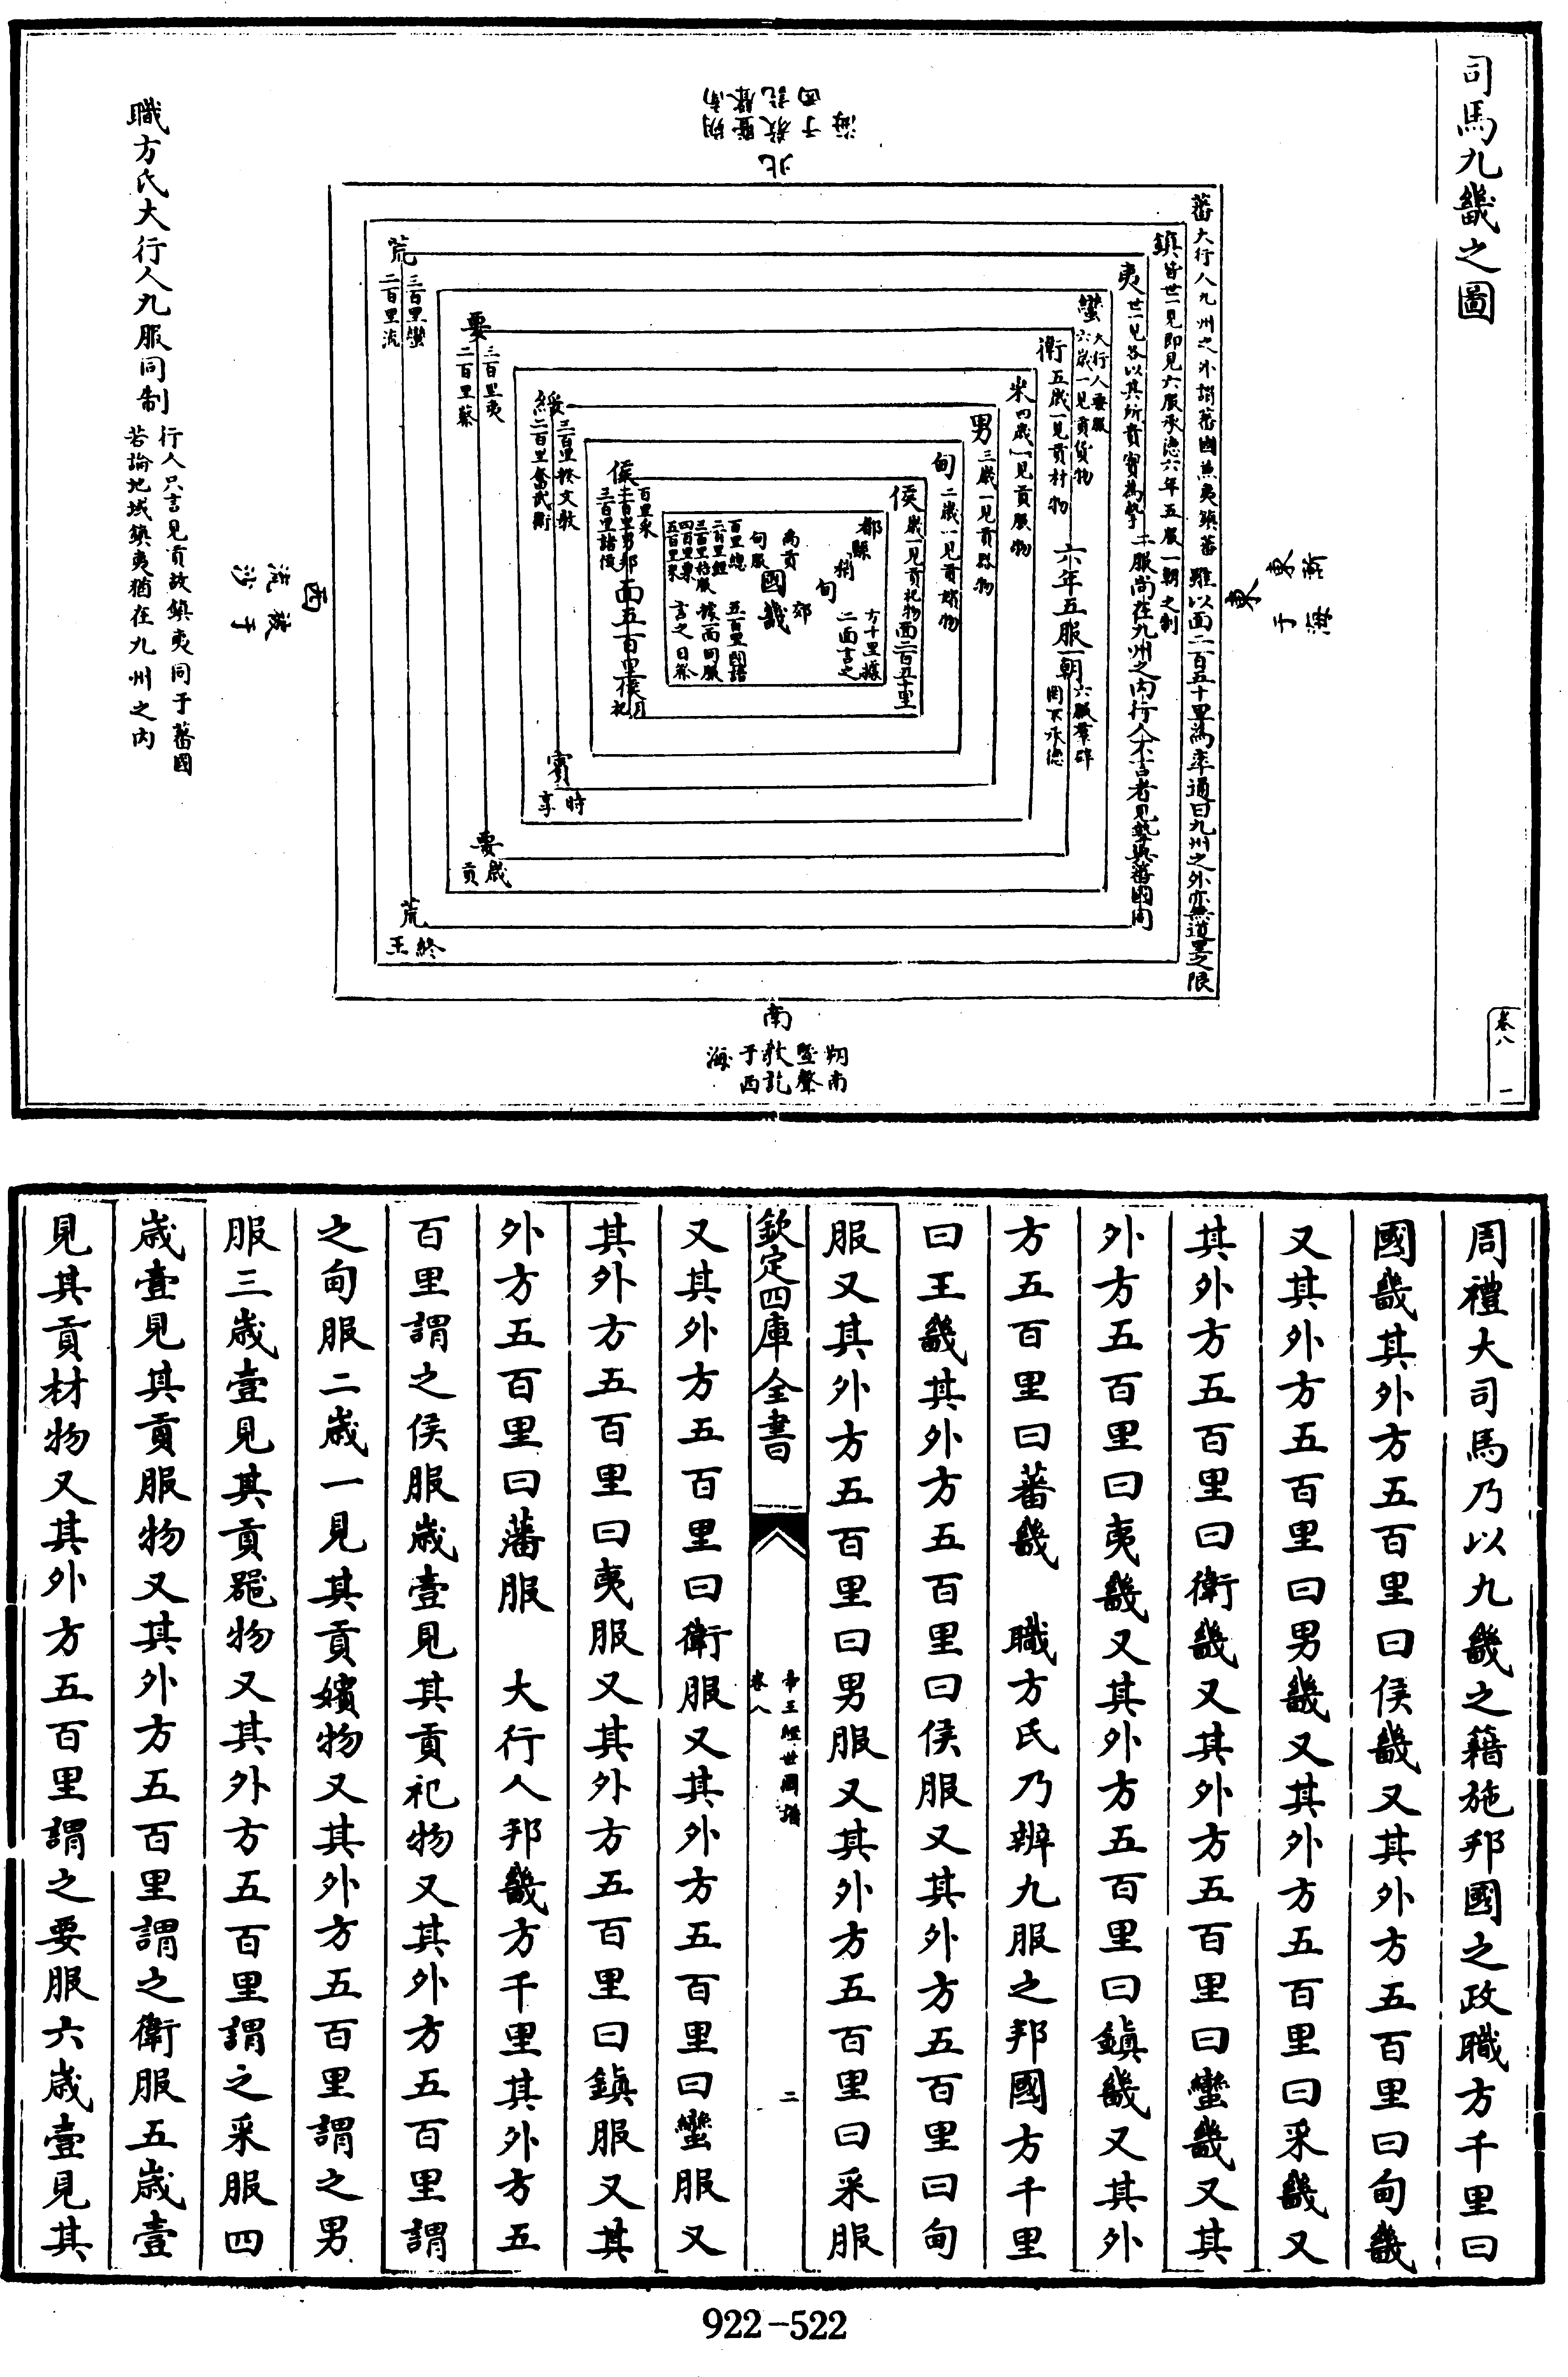 司馬九畿之圖
卷八
一
北
朔南
暨聲
教訖
于西
海
蕃大行人九州之外謂蕃國無夷鎮蕃雖以面二百五十里為率通曰九州之外亦無道里之限
鎮皆世一見即見六服承德六年五服一朝之制
夷世一見各以其所貴寶為摯二服尚在九州之内行人不言者見摯與蕃國同
蠻大行人要服
六歲一見貢貨物
衛五歲一見貢材物
六年五服一朝六服羣辟
罔不承德
采四歲一見貢服物
男三歲一見貢器物
甸二歲一見貢嬪物
侯歲一見貢祀物面二百五十里
都
縣
稍
甸
郊
方千里據
二面言之
國畿
禹貢
甸服
百里總
二百里銍
三百里秸服
四百里粟
五百里米
五百里國語
據一面甸服
言之日祭
侯
百里采
二百里男邦
三百里諸侯
面五百里侯月
祀
綏
三百里揆文教
二百里奮武衛
賓
時
享
要
三百里夷
二百里蔡
要
歲
貢
荒
三百里蠻
二百里流
荒
終
王
東
東漸
于海
西
西被于
流沙
南
朔南
暨聲
教訖
于西
海
職方氏大行人九服同制
行人只言見貢故鎮夷同于蕃國
若論地域鎮夷猶在九州之内
周禮大司馬乃以九畿之籍施邦國之政職方千里曰
國畿其外方五百里曰侯畿又其外方五百里曰甸畿
又其外方五百里曰男畿又其外方五百里曰采畿又
其外方五百里曰衛畿又其外方五百里曰蠻畿又其
外方五百里曰夷畿又其外方五百里曰鎮畿又其外
方五百里曰蕃畿　職方氏乃辨九服之邦國方千里
曰王畿其外方五百里曰侯服又其外方五百里曰甸
服又其外方五百里曰男服又其外方五百里曰采服
欽定四庫全書
帝王經世圖譜
卷八
二
又其外方五百里曰衛服又其外方五百里曰蠻服又
其外方五百里曰夷服又其外方五百里曰鎮服又其
外方五百里曰藩服　大行人邦畿方千里其外方五
百里謂之侯服歲壹見其貢祀物又其外方五百里謂
之甸服二歲一見其貢嬪物又其外方五百里謂之男
服三歲壹見其貢器物又其外方五百里謂之采服四
歲壹見其貢服物又其外方五百里謂之衛服五歲壹
見其貢材物又其外方五百里謂之要服六歲壹見其
922-522